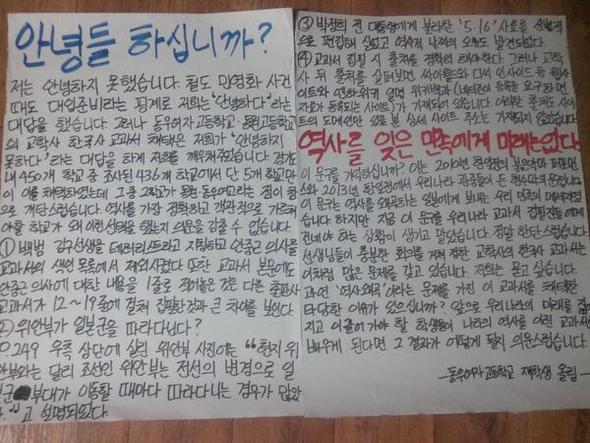 안녕들 하십니까?
저는 안녕하지 못했습니다. 철도 민영화 사건
때도 대입준비라는 핑계로 저희는 '안녕하다'라는
대답을 했습니다. 그러나 동우여자고등학교·동원고등학교
의 교학사 한국사 교과서 채택은 저희가 '안녕하지
못하다'라는 대답을 하게 저희를 깨워주었습니다. 경기도
내 450개 학교 중 조사된 436개 학교에서 단 5개 학교만
이 이를 채택하였는데 그 중 2학교가 동원·동우여고라는 점이 참
으로 개탄스럽습니다. 역사를 가장 정확하고 객관적으로 가르쳐
야할 학교가 왜 이런 선택을 했는지 의문을 감출 수 없습니다.
① 백범 김구선생을 테러리스트라고 지칭하고 안중근 의사를
교과서의 색인 목록에서 제외시켰다. 또한 교과서 본문에도
안중근 의사에 대한 내용을 1줄로 적어놓은 것은 다른 출판사
교과서가 12~19줄에 걸쳐 집필한것과 큰 차이를 보인다.
② 위안부가 일본군을 따라다닌다?
P.249 우측 상단에 실린 위안부 사진에는 "현지 위
안부와는 달리 조선인 위안부는 전선의 변경으로 일
본군 부대가 이동할 때마다 따라다니는 경우가 많았
다."고 설명되있다.
③ 박정희 전 대통령에게 불리한 '5.16' 사료를 선별적
으로 편집해 실었고 역사적 날짜의 오류도 발견되었다.
④ 교과서 집필 시 출처를 정확히 해야한다. 그러나 교학
사 뒤 출처를 살펴보면 싸이월드와 디씨 인사이드 등 웹사
이트와 엔하위키 일명 위키백과(네티즌이 등록을 요구하면
자료가 등록되는 사이트)가 기재되어 있습니다. 이러한 출처도 사이
트의 도메인만 있을 뿐 상세 사이트 주소는 기재되지 않았습니다.
역사를 잊은 민족에게 미래는없다
이 문구를 기억하십니까? 이는 2010년 한일전의
스와 2013년 한일전에서 우리나라 관중들이 든 현수막의 문구입니다
이 문구는 역사를 왜곡하는 일본에게 보내는 우리 민족의 메세지였
습니다. 하지만 지금 이 문구를 우리나라 교과서 집필진들에게
건네야 하는 상황이 생기고 말았습니다. 정말 한탄스럽습니다.
선생님들이 충분한 회의를 거쳐 정한 교학사의 한국사 교과서는
이처럼 많은 문제를 갖고 있습니다. 저희는 묻고 싶습니다.
과연 '역사왜곡'이라는 문제를 가진 이 교과서를 채택할
타당한 이유가 있으십니까? 앞으로 우리나라의 미래를 짊어
지고 이끌어가야 할 학생들이 나라의 역사를 이런 교과서로
배우게 된다면 그 결과가 어떻게 될지 의문스럽습니다.
- 동우여자고등학교 재학생 올림 -